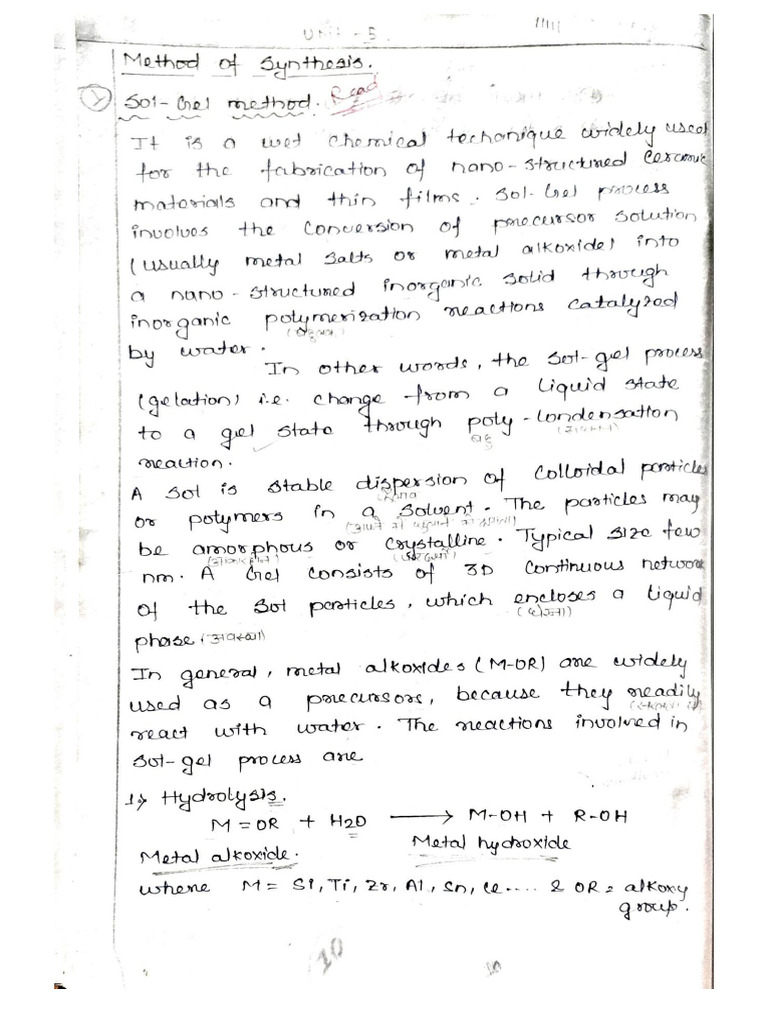 UNIT - 5
Method of Synthesis.
Sol-Gel method. Read
It is a wet chemical techanique widely used
for the fabrication of nano-structured ceramic
materials and thin films. Sol-Gel process
involves the conversion of precursor solution
(usually metal salts or metal alkoxide) into
a nano-structured inorganic solid through
inorganic polymerization reactions catalyzed
by water.
In other words, the sol-gel process
(gelation) i.e. change from a liquid state
to a gel state through poly-condensation
बहु
reaction.
A sol is stable dispersion of colloidal particles
or polymers in a solvent. The particles may
be amorphous or crystalline. Typical size few
nm. A Gel consists of 3D continuous network
of the sol particles, which encloses a liquid
phase (अवस्था)
In general, metal alkoxides (M-OR) are widely
used as a precursors, because they readily
react with water. The reactions involved in
sol-gel process are
1) Hydrolysis.
M=OR + H2O → M-OH + R-OH
Metal alkoxide. Metal hydroxide
where M = Si, Ti, Zr, Al, Sn, Ce.... & OR = alkoxy
group.
10